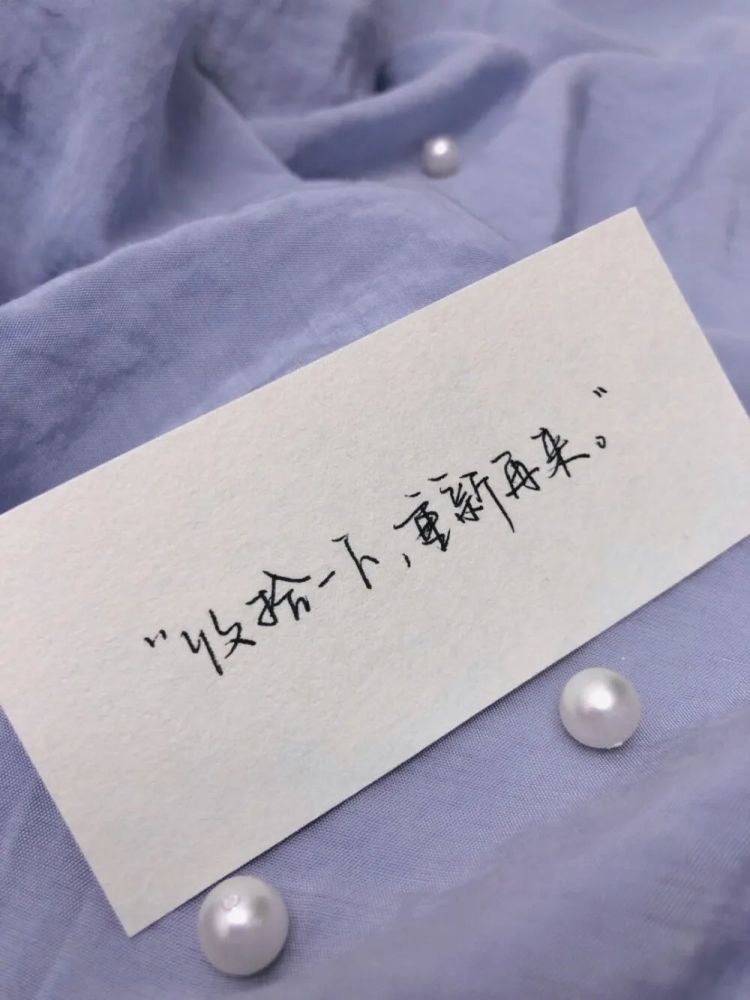 “收拾一下，重新再来。”